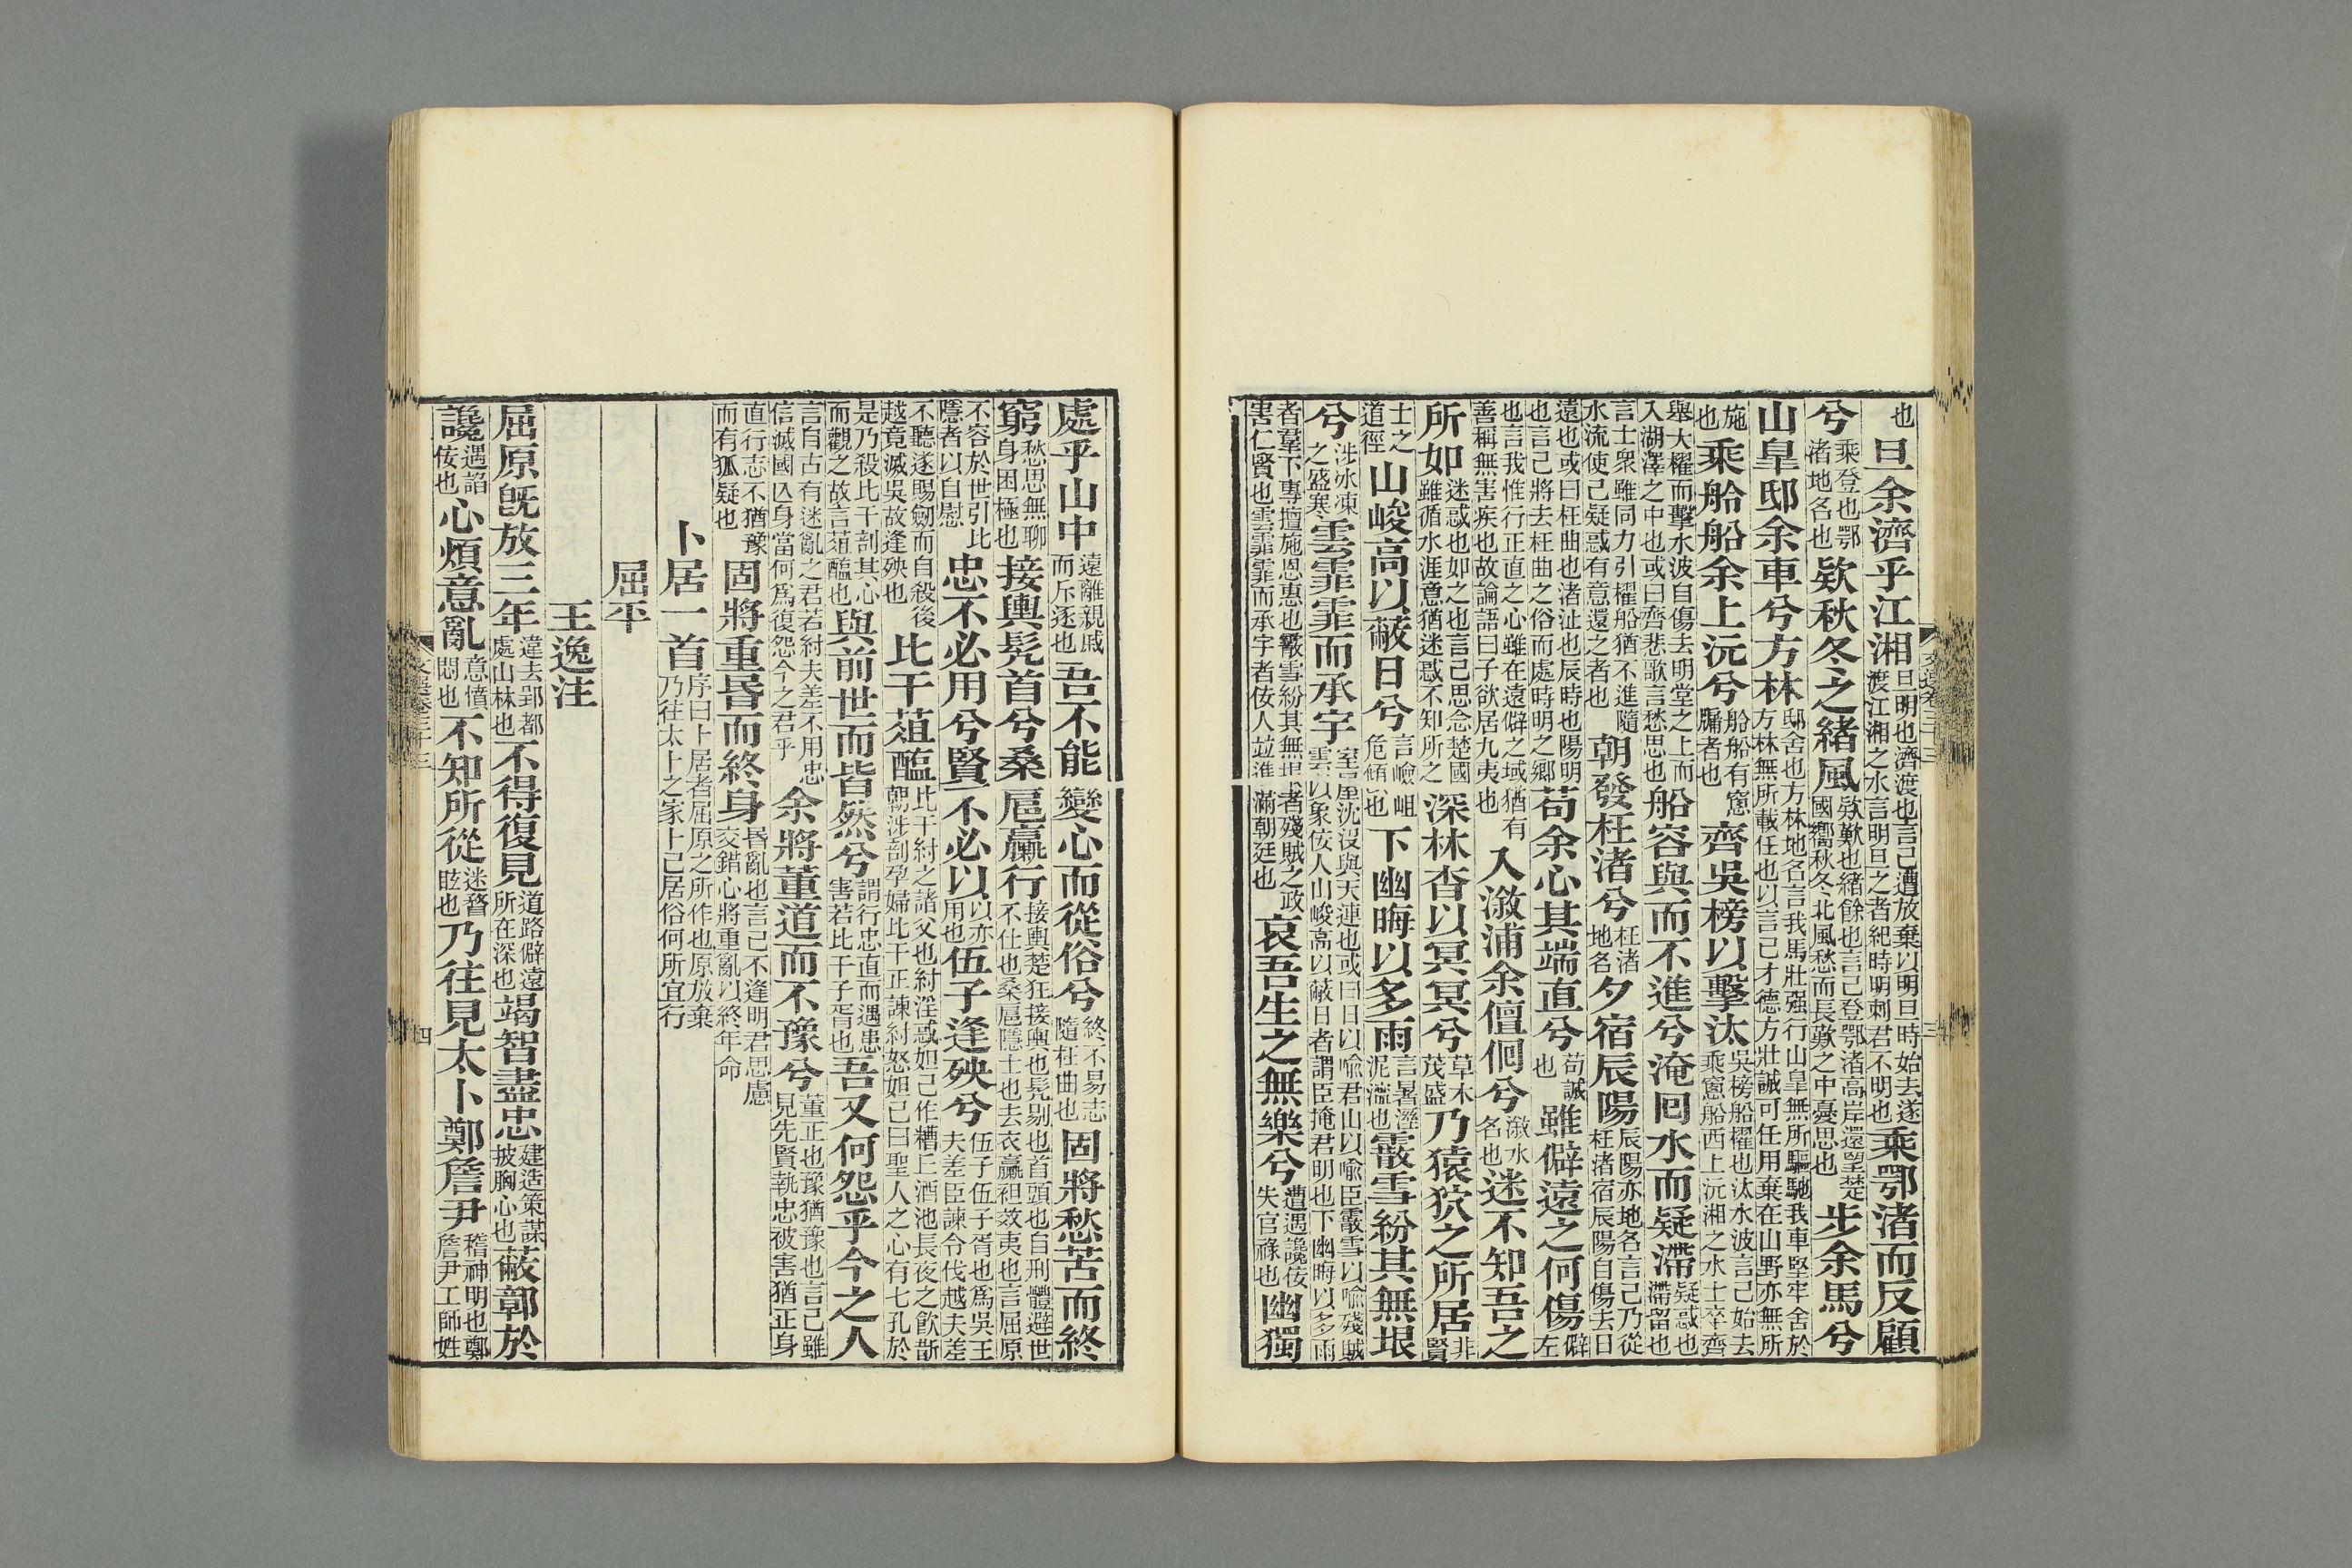 也旦余濟乎江湘旦明也濟渡也言己遭放棄以明旦時始去遂渡江湘之水言明旦之者紀時明刺君不明也乘鄂渚而反顧
兮乘登也鄂渚地名也欸秋冬之緒風欸歎也緒餘也言己登鄂渚高岸還望楚國嚮秋冬北風愁而長歎之中憂思也步余馬兮
山皐邸余車兮方林邸舍也方林地名言我馬壯强行山皐無所驅馳我車堅牢舍於方林無所載任也以言己才德方壯誠可任用棄在山野亦無所
施也乘舲船余上沅兮舲船有窻牖者也齊吳榜以擊汰吳榜船櫂也汰水波言己始去乘窻船西上沅湘之水士卒齊
舉大櫂而擊水波自傷去明堂之上而入湖澤之中也或曰齊悲歌言愁思也船容與而不進兮淹回水而疑滯疑惑也滯留也
言士衆雖同力引櫂船猶不進隨水流使己疑惑有意還之者也朝發枉渚兮枉渚地名夕宿辰陽辰陽亦地名言己乃從枉渚宿辰陽自傷去日
遠也或曰枉曲也渚沚也辰時也陽明也言己將去枉曲之俗而處時明之鄉苟余心其端直兮苟誠也雖僻遠之何傷僻左
也言我惟行正直之心雖在遠僻之域猶有善稱無害疾也故論語曰子欲居九夷也入漵浦余儃佪兮漵水名也迷不知吾之
所如迷惑也如之也言己思念楚國雖循水涯意猶迷惑不知所之深林杳以冥冥兮草木茂盛乃猿狖之所居非賢
士之道徑山峻高以蔽日兮言嶮岨危傾也下幽晦以多雨言暑溼泥濘也霰雪紛其無垠
兮涉冰凍之盛寒雲霏霏而承宇室屋沈沒與天連也或曰日以喻君山以喻臣霰雪以喻殘賊雲以象佞人山峻高以蔽日者謂臣掩君明也下幽晦以多雨
者羣下專擅施恩惠也霰雪紛其無垠者殘賊之政害仁賢也雲霏霏而承宇者佞人竝進滿朝廷也哀吾生之無樂兮遭遇讒佞失官祿也幽獨
處乎山中遠離親戚而斥逐也吾不能變心而從俗兮終不易志隨枉曲也固將愁苦而終
窮愁思無聊身困極也接輿髡首兮桑扈臝行接輿楚狂接輿也髡剔也首頭也自刑體避世不仕也桑扈隱士也去衣臝裎效夷也言屈原
不容於世引此隱者以自慰忠不必用兮賢不必以以亦用也伍子逢殃兮伍子伍子胥也爲吳王夫差臣諫令伐越夫差
不聽遂賜劒而自殺後越竟滅吳故逢殃也比干葅醢比干紂之諸父也紂淫惑妲己作糟丘酒池長夜之飮斮朝涉刳孕婦比干正諫紂怒妲己曰聖人之心有七孔於
是乃殺比干剖其心而觀之故言葅醢也與前世而皆然兮謂行忠直而遇患害若比干子胥也吾又何怨乎今之人
言自古有迷亂之君若紂夫差不用忠信滅國亾身當何爲復怨今之君乎余將董道而不豫兮董正也豫猶豫也言己雖見先賢執忠被害猶正身
直行志不猶豫而有狐疑也固將重昏而終身昏亂也言己不逢明君思慮交錯心將重亂以終年命
卜居一首序曰卜居者屈原之所作也原放棄乃往太卜之家卜己居俗何所宜行
屈平
王逸注
屈原旣放三年違去郢都處山林也不得復見道路僻遠所在深也竭智盡忠建造策謀披胸心也蔽鄣於
讒遇諂佞也心煩意亂意憤悶也不知所從迷瞀眩也乃往見太卜鄭詹尹稽神明也鄭詹尹工師姓